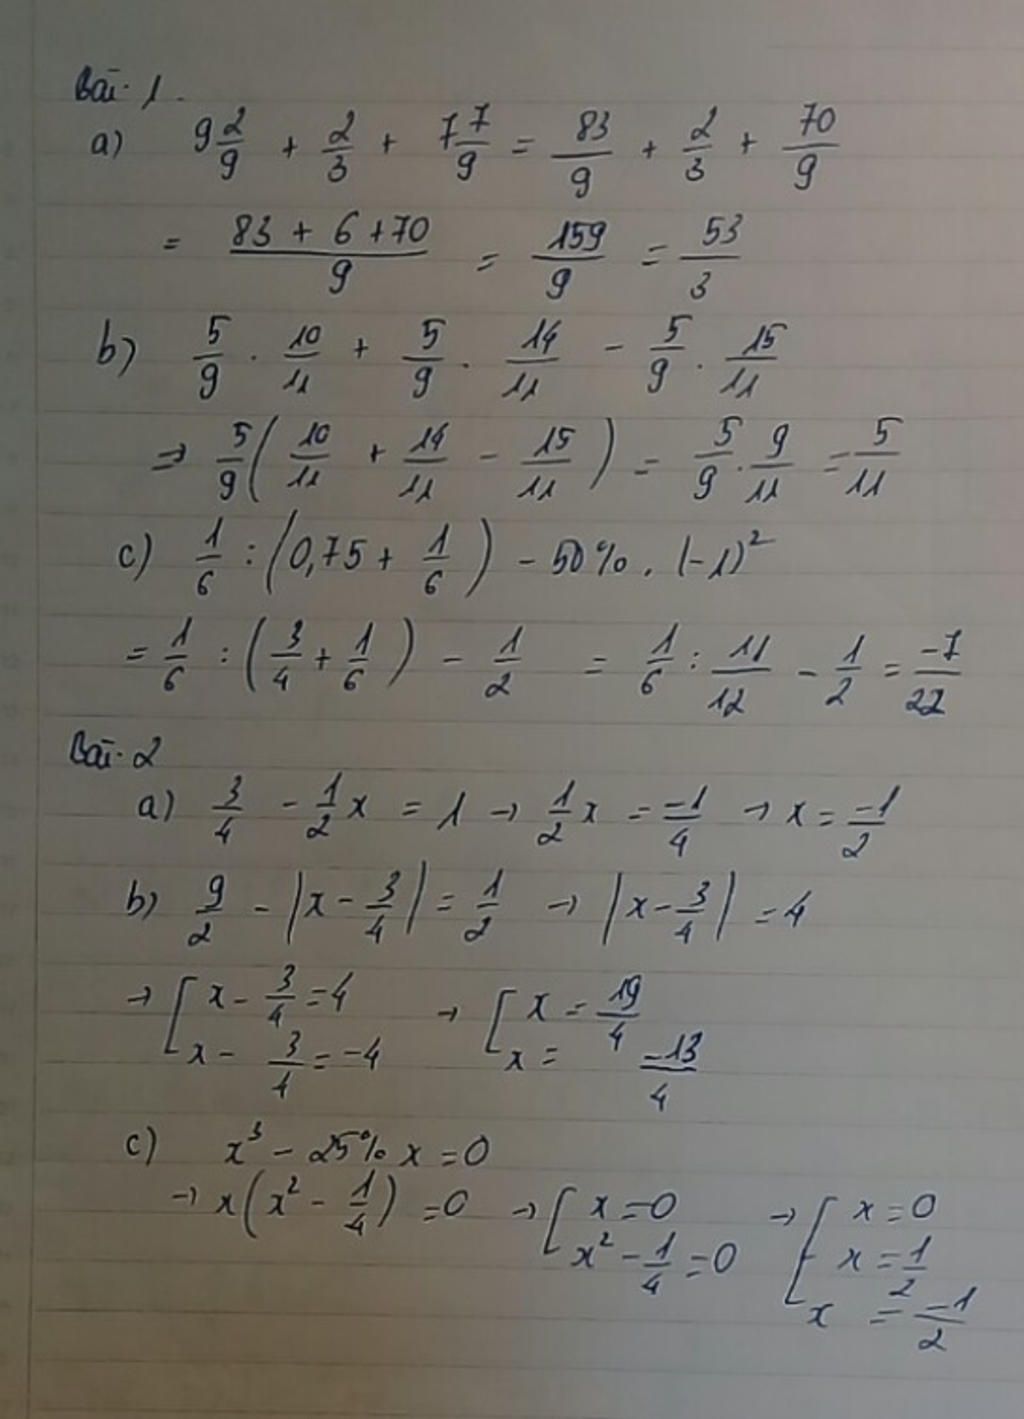 Bài 1.
a) 9 2/9 + 2/3 + 7 7/9 = 83/9 + 2/3 + 70/9
= (83 + 6 + 70)/9 = 159/9 = 53/3
b) 5/9 . 10/11 + 5/9 . 14/11 - 5/9 . 15/11
⇒ 5/9 (10/11 + 14/11 - 15/11) = 5/9 . 9/11 = 5/11
c) 1/6 : (0,75 + 1/6) - 50% . (-1)²
= 1/6 : (3/4 + 1/6) - 1/2 = 1/6 : 11/12 - 1/2 = -7/22
Bài 2
a) 3/4 - 1/2 x = 1 → 1/2 x = -1/4 → x = -1/2
b) 9/2 - |x - 3/4| = 1/2 → |x - 3/4| = 4
→ [ x - 3/4 = 4 → [ x = 19/4
x - 3/4 = -4 x = -13/4
c) x³ - 25% x = 0
→ x(x² - 1/4) = 0 → [ x = 0 → [ x = 0
x² - 1/4 = 0 x = 1/2
x = -1/2